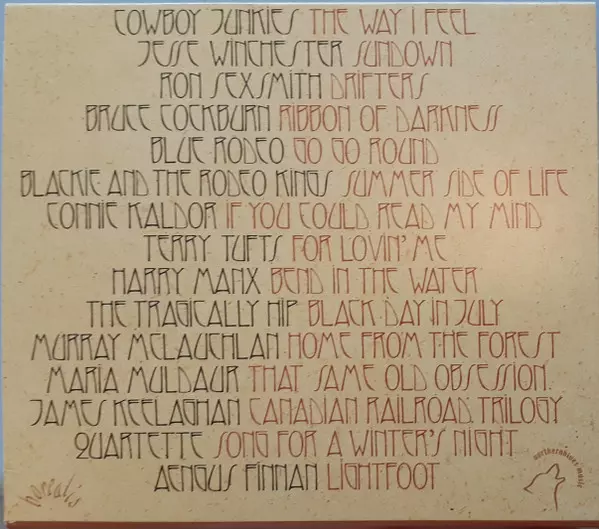 COWBOY JUNKIES THE WAY I FEEL
JESSE WINCHESTER SUNDOWN
RON SEXSMITH DRIFTERS
BRUCE COCKBURN RIBBON OF DARKNESS
BLUE RODEO GO GO ROUND
BLACKIE AND THE RODEO KINGS SUMMER SIDE OF LIFE
CONNIE KALDOR IF YOU COULD READ MY MIND
TERRY TUFTS FOR LOVIN' ME
HARRY MANX BEND IN THE WATER
THE TRAGICALLY HIP BLACK DAY IN JULY
MURRAY MCLAUCHLAN HOME FROM THE FOREST
MARIA MULDAUR THAT SAME OLD OBSESSION
JAMES KEELAGHAN CANADIAN RAILROAD TRILOGY
QUARTETTE SONG FOR A WINTER'S NIGHT
AENGUS FINNAN LIGHTFOOT
borealis
northernblues music